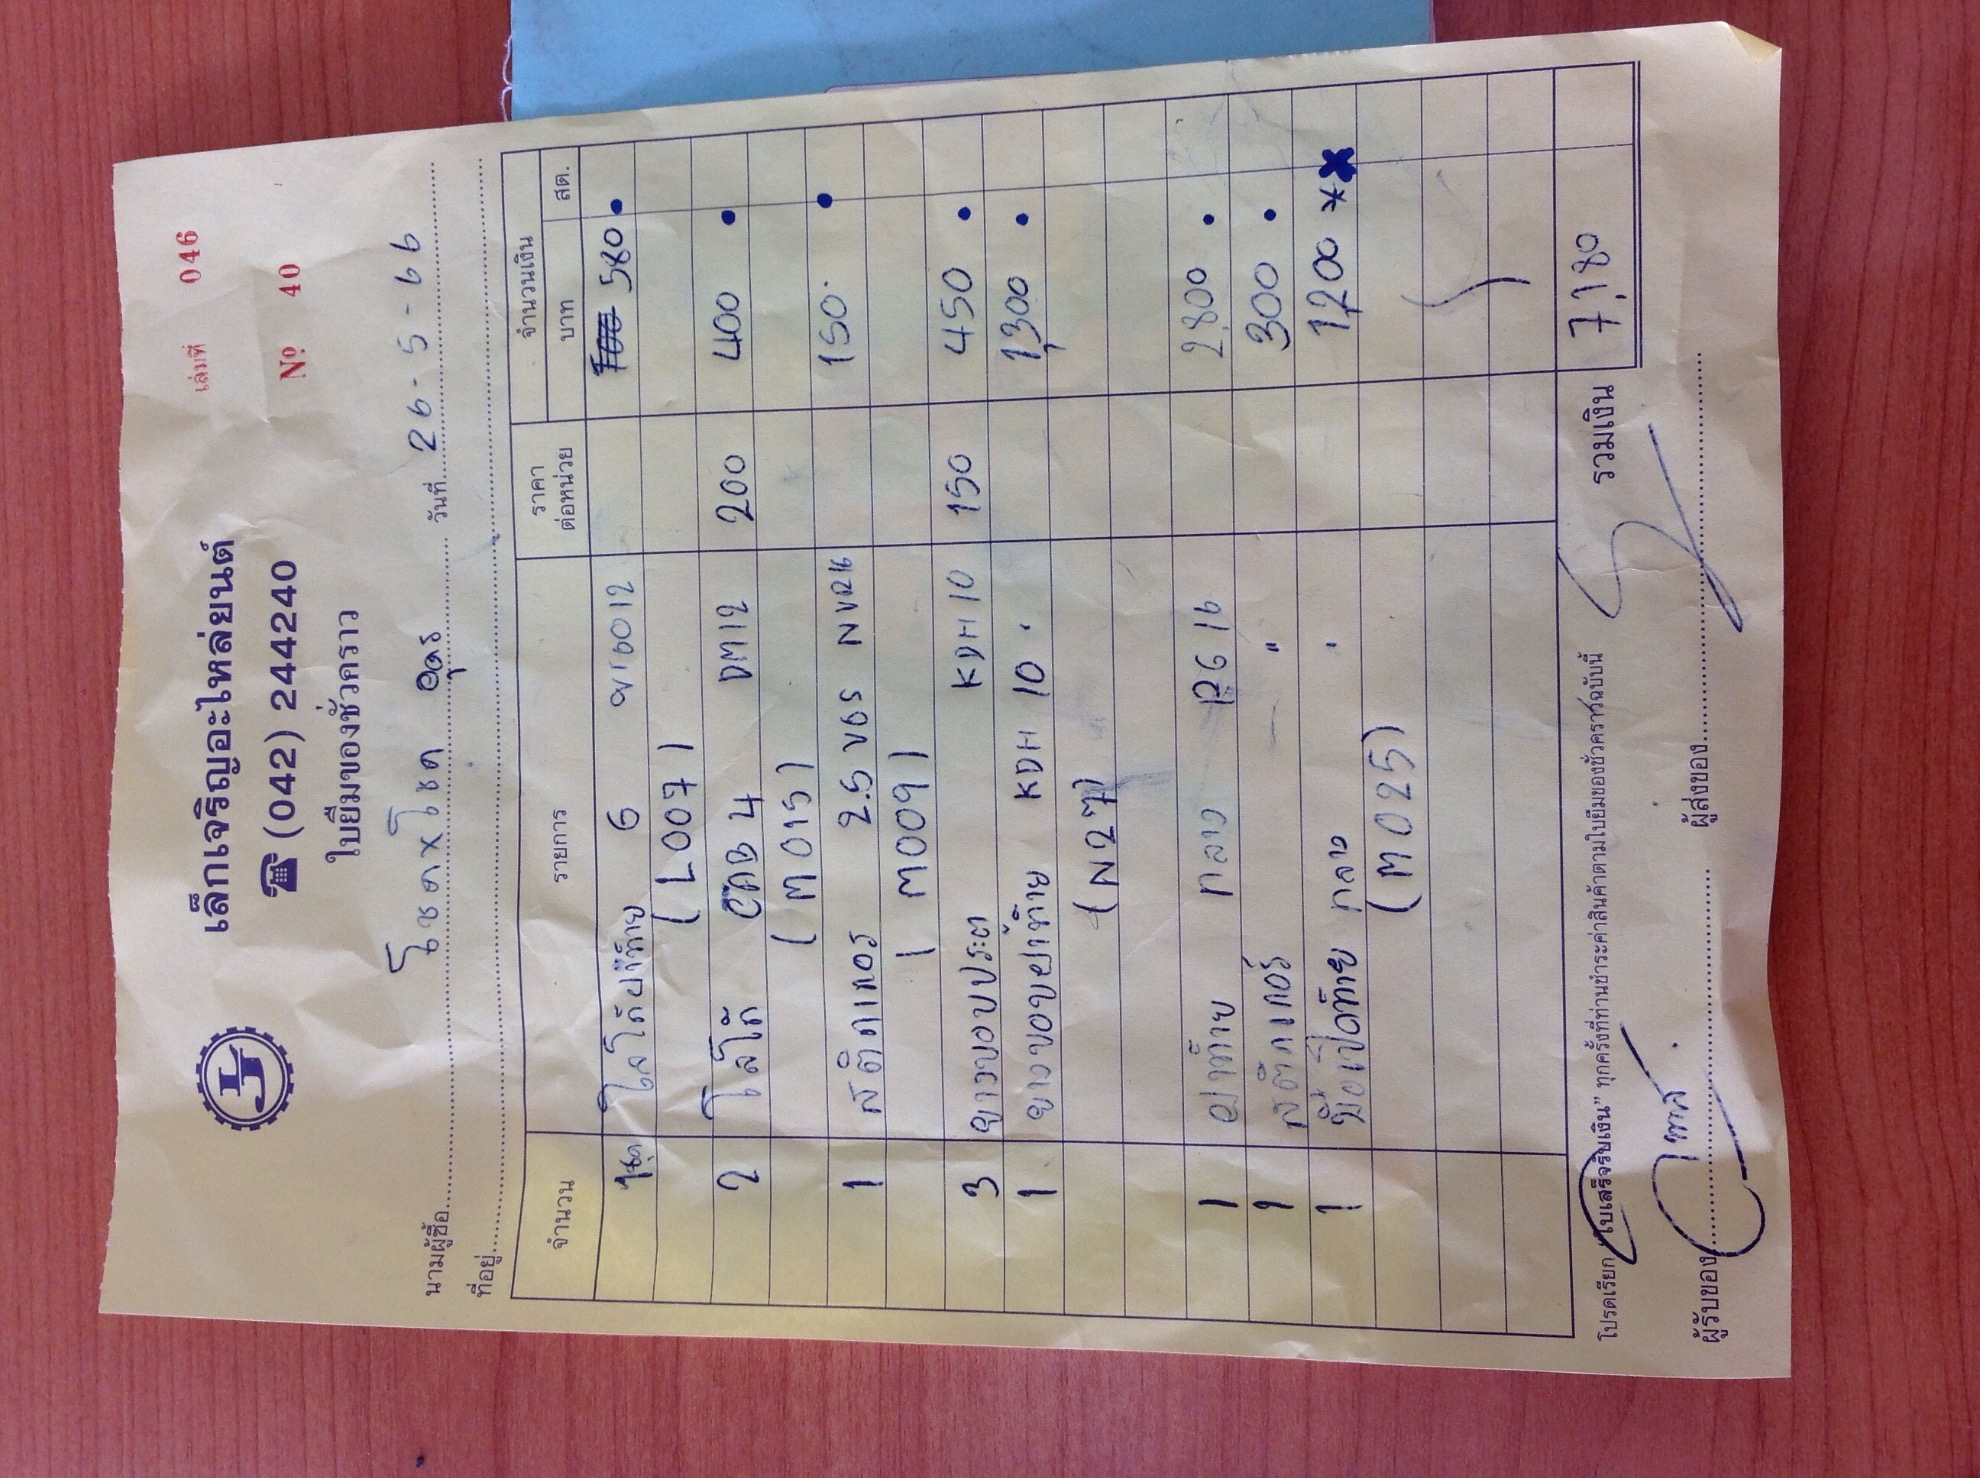 เล่มที่ 046
เล็กเจริญอะไหล่ยนต์
☎ (042) 244240
Nº 40
ใบยืมของชั่วคราว
นามผู้ซื้อ โชคxโชค อุดร วันที่ 26-5-66
ที่อยู่
จำนวน รายการ ราคาต่อหน่วย จำนวนเงิน
บาท สต.
1ชุด โลโก้ฝาท้าย 6 580
(L007)
2 โลโก้ CAB 4 DM12 200 400
(M015)
1 สติกเกอร์ 2.5 150
(M009)
3 ยางขอบประตู KDH 10 150 450
1 ยางขอบฝาท้าย KDH 10 1,300
(N27)
1 ฝาท้าย กลาง 2,800
1 สติกเกอร์ " 300
1 มือเปิดท้าย กลาง 1,200
(M025)
รวมเงิน 7,180
โปรดเรียก "ใบเสร็จรับเงิน" ทุกครั้งที่ท่านชำระค่าสินค้าตามใบยืมของชั่วคราวฉบับนี้
ผู้รับของ ผู้ส่งของ